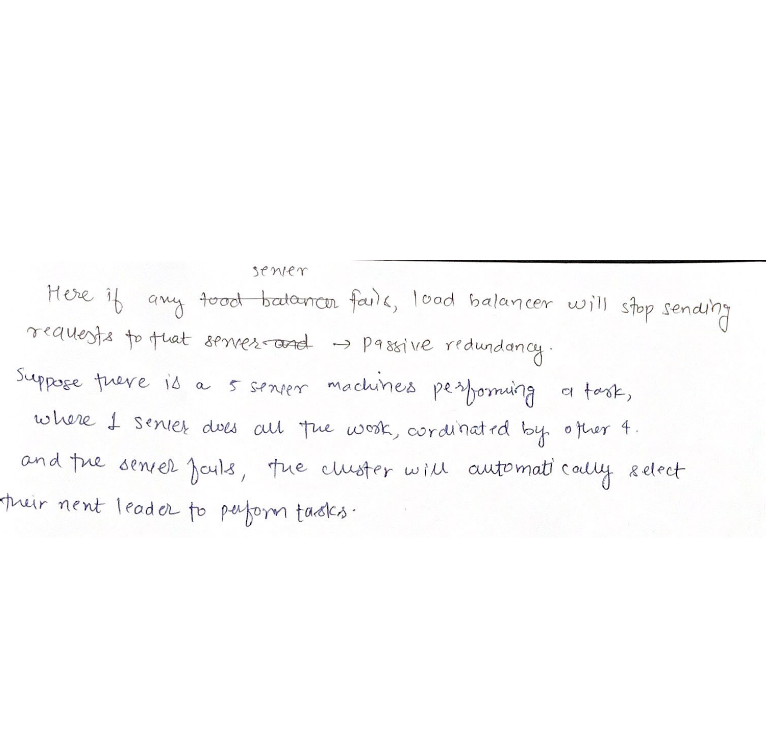 server
Here if any load balancer fails, load balancer will stop sending
requests to that server and → passive redundancy.
Suppose there is a 5 server machines performing a task,
where 1 server does all the work, cordinated by other 4.
and the server fails, the cluster will automatically select
their next leader to perform tasks.